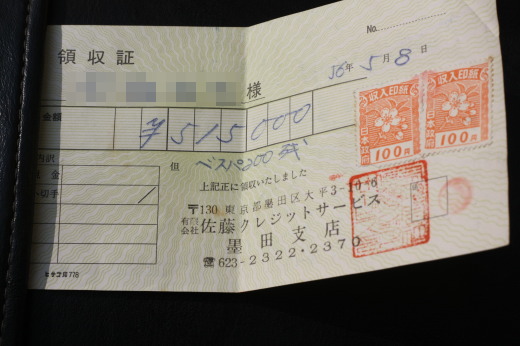 No.
領収証
様
56年5月8日
金額
¥515000
内訳
現金
小切手
但 ベスパ200 代
上記正に領収いたしました
〒130 東京都墨田区大平3-10-8
有限会社 佐藤クレジットサービス
墨田支店
☎623-2322・2370
ヒサゴ #778
収入印紙
日本政府
100円
収入印紙
日本政府
100円